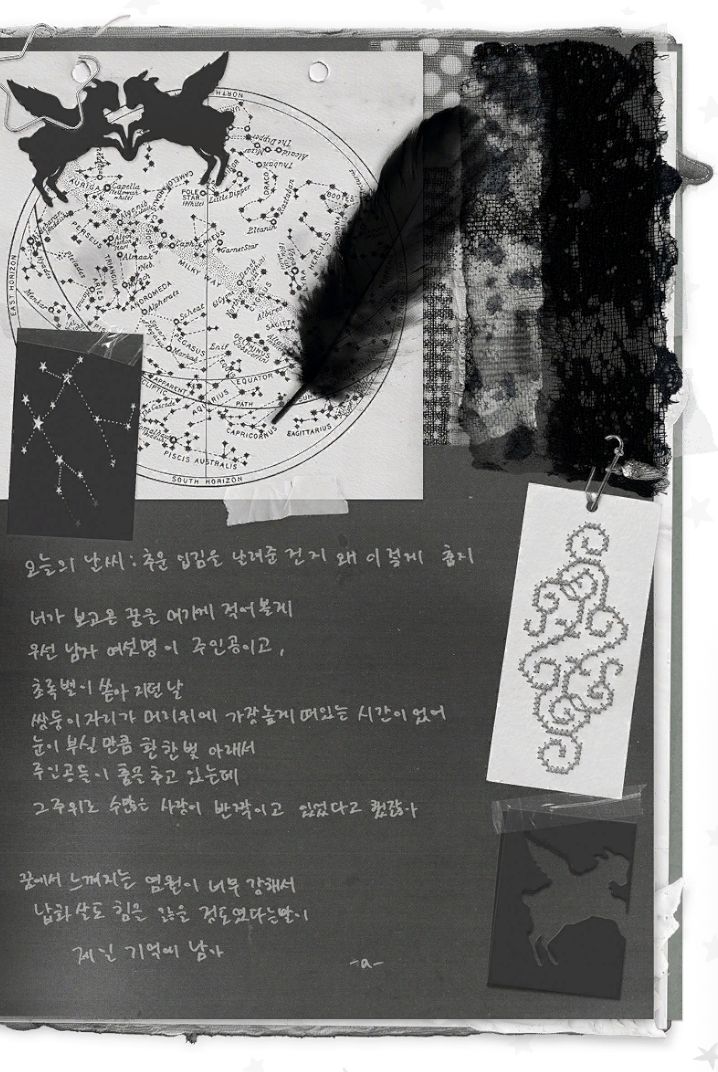 NORTH
The Dipper
Alcaid
Mizar
Thuban
DRACO
Little Dipper
POLE STAR
(White)
Etanin
BOOTES
HERCULES
AURIGA
Capella
CAMELOPARD
PERSEUS
Algenib
Algol
Almaak
CEPHEUS
Garnet Star
MILKY WAY
TRIANGULUM
ANDROMEDA
Alpheratz
EAST HORIZON
Menkar
Scheat
PEGASUS
Markab
Enif
DELPHINUS
EQUATOR
APPARENT
PATH
ECLIPTIC
AQUARIUS
The Cascade
CAPRICORNUS
SAGITTARIUS
PISCIS AUSTRALIS
SOUTH HORIZON
오늘의 날씨 : 추운 입김을 날려준 건지 왜 이렇게 춥지
너가 보고온 꿈을 여기에 적어볼게
우선 남자 여섯명이 주인공이고,
초록별이 쏟아지던 날
쌍둥이자리가 머리위에 가장높게 떠있는 시간이었어
눈이 부신만큼 환한 빛 아래서
주인공들이 춤을 추고 있는데
그 주위로 수많은 사랑이 반짝이고 있었다고 했잖아
꿈에서 느껴지는 염원이 너무 강해서
납화살도 힘을 잃을 정도였다는말이
제일 기억에 남아
-a-